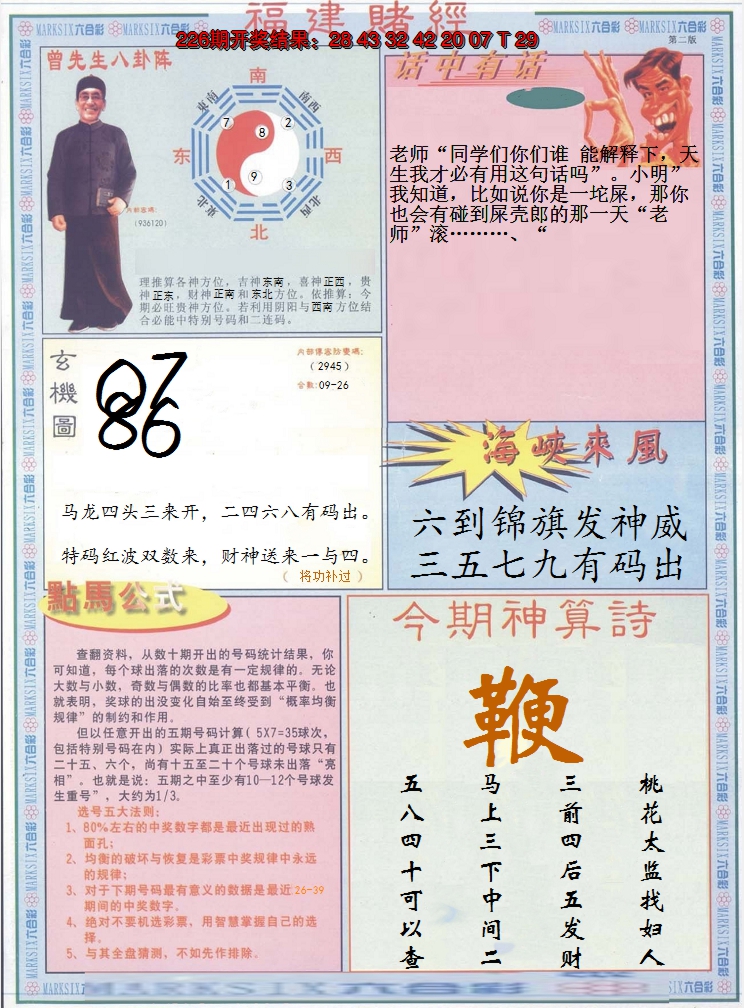 福建賭經
226期开奖结果：28 43 32 42 20 07 T 29
第二版
MARKSIX六合彩
曾先生八卦阵
南
东南
南西
7
8
2
东
西
9
1
3
東北
北西
北
内部密碼:
(936120)
理推算各神方位，吉神东南，喜神正西，贵
神正东，财神正南和东北方位。依推算：今
期必旺贵神方位。若利用阴阳与西南方位结
合必能中特别号码和二连码。
话中有话
老师“同学们你们谁 能解释下，天
生我才必有用这句话吗”。小明”
我知道，比如说你是一坨屎，那你
也会有碰到屎壳郎的那一天“老
师”滚………、“
玄機圖
07
86
内部傳密防變碼:
(2945)
合數:09-26
马龙四头三来开，二四六八有码出。
特码红波双数来，财神送来一与四。
（ 将功补过 ）
海峽來風
六到锦旗发神威
三五七九有码出
點馬公式
查翻资料，从数十期开出的号码统计结果，你
可知道，每个球出落的次数是有一定规律的。无论
大数与小数，奇数与偶数的比率也都基本平衡。也
就表明，奖球的出没变化自始至终受到“概率均衡
规律”的制约和作用。
但以任意开出的五期号码计算( 5X7=35球次，
包括特别号码在内)实际上真正出落过的号球只有
二十五、六个，尚有十五至二十个号球未出落“亮
相”。也就是说：五期之中至少有10—12个号球发
生重号”，大约为1/3。
选号五大法则：
1、80%左右的中奖数字都是最近出现过的熟
面孔；
2、均衡的破坏与恢复是彩票中奖规律中永远
的规律；
3、对于下期号码最有意义的数据是最近26-39
期间的中奖数字。
4、绝对不要机选彩票，用智慧掌握自己的选
择。
5、与其全盘猜测，不如先作排除。
今期神算詩
鞭
桃花太监找妇人
三前四后五发财
马上三下中间二
五八四十可以查